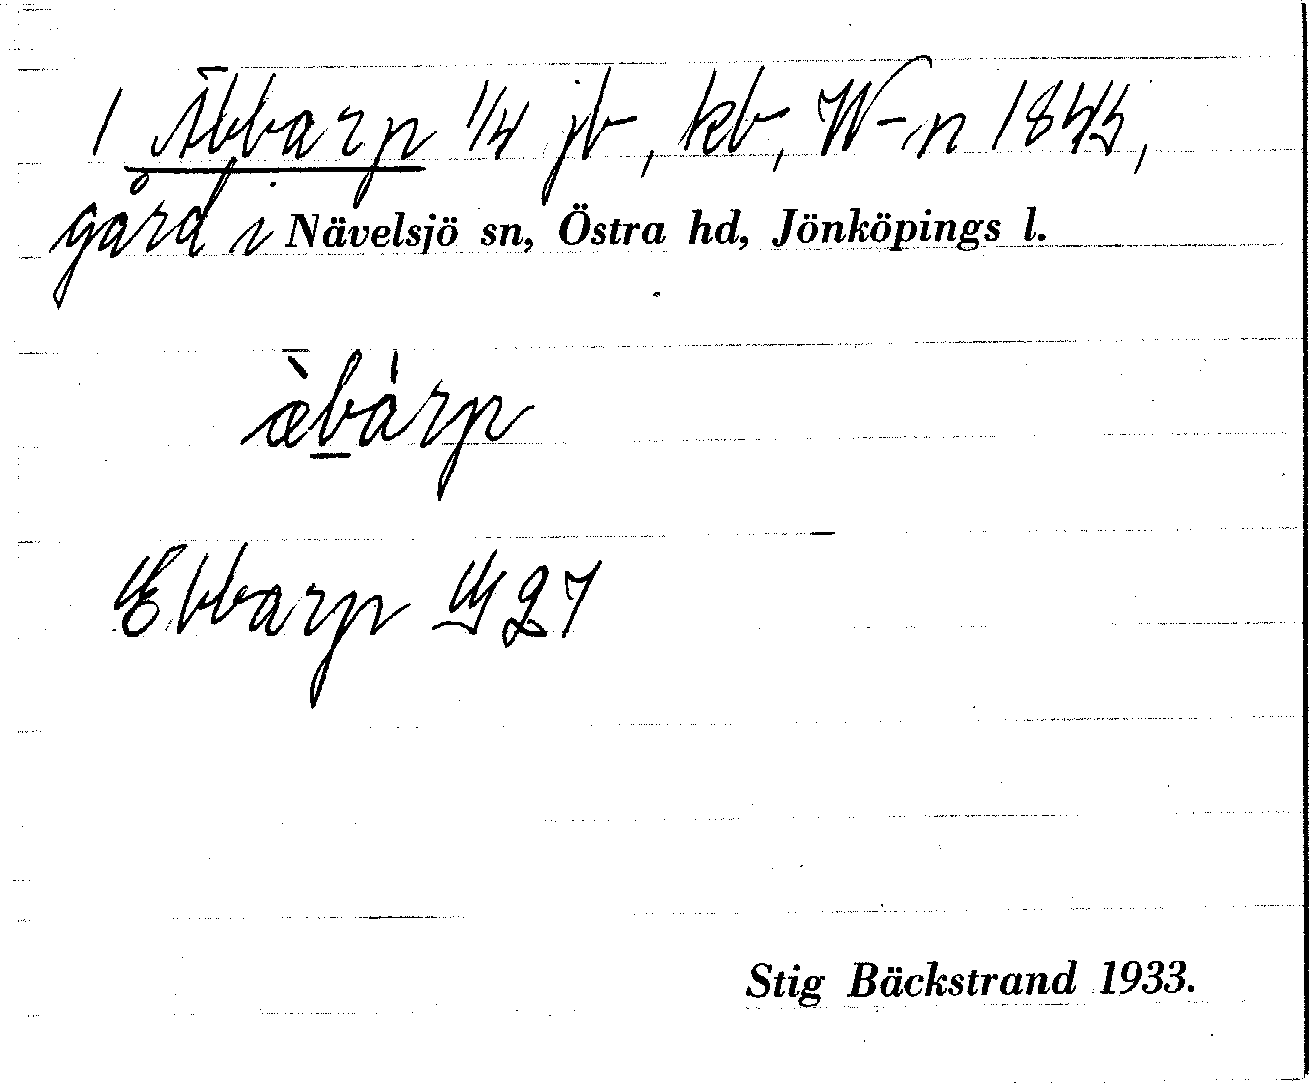 1 Äbbarp 1/4 jb, kb, W-n 1845,
gård i Nävelsjö sn, Östra hd, Jönköpings l.
æ̀bàrp
Ebbarp 27
Stig Bäckstrand 1933.